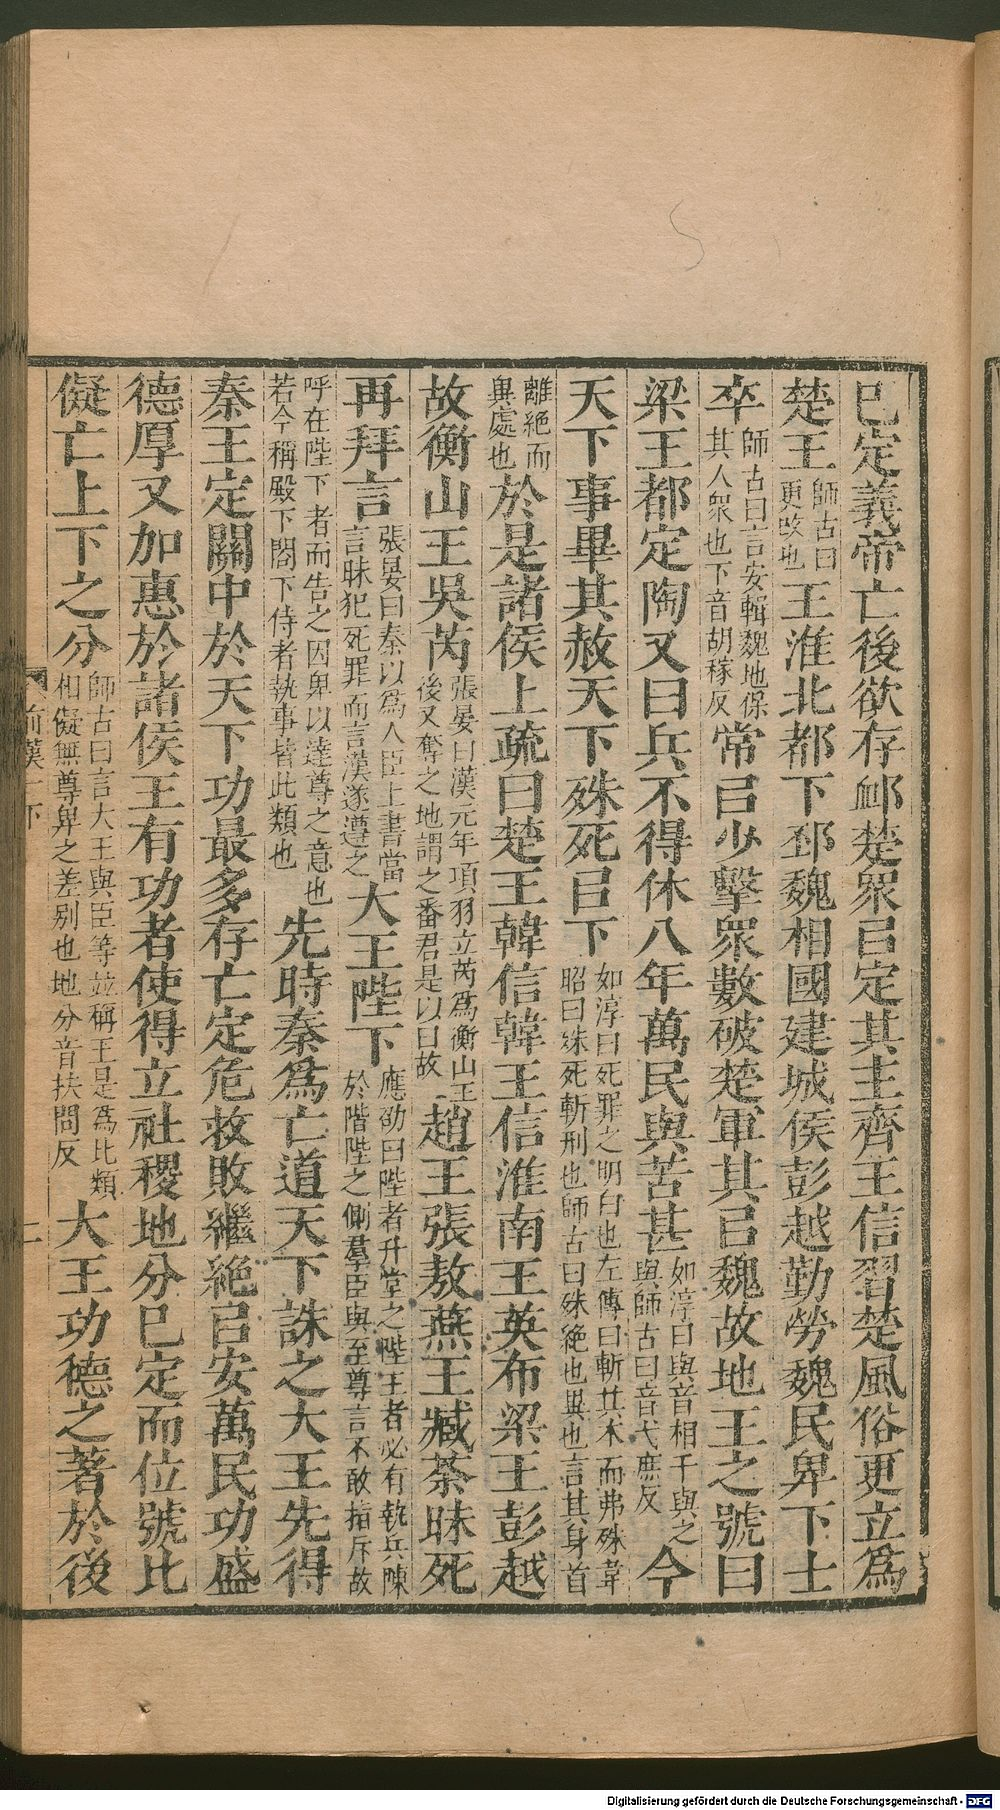 已定義帝亡後欲存䘏楚衆㠯定其主齊王信習楚風俗更立爲
楚王師古曰更改也王淮北都下邳魏相國建城侯彭越勤勞魏民卑下士
卒師古曰言安輯魏地保其人衆也下音胡稼反常㠯少擊衆數破楚軍其㠯魏故地王之號曰
梁王都定陶又曰兵不得休八年萬民與苦甚如淳曰與音相干與之與師古曰音弋庶反今
天下事畢其赦天下殊死㠯下如淳曰死罪之明白也左傳曰斬其木而弗殊韋昭曰殊死斬刑也師古曰殊絶也異也言其身首
離絶而異處也於是諸侯上疏曰楚王韓信韓王信淮南王英布梁王彭越
故衡山王吳芮張晏曰漢元年項羽立芮爲衡山王後又奪之地謂之番君是以曰故趙王張敖燕王臧荼昧死
再拜言張晏曰秦以爲人臣上書當言昧犯死罪而言漢遂遵之大王陛下應劭曰陛者升堂之陛王者必有執兵陳於階陛之側羣臣與至尊言不敢指斥故
呼在陛下者而告之因卑以達尊之意也若今稱殿下閤下侍者執事皆此類也先時秦爲亡道天下誅之大王先得
秦王定關中於天下功最多存亡定危救敗繼絕㠯安萬民功盛
德厚又加惠於諸侯王有功者使得立社稷地分已定而位號比
儗亡上下之分師古曰言大王與臣等並稱王是爲比類相儗無尊卑之差别也地分音扶問反大王功德之著於後
前漢一下
二
Digitalisierung gefördert durch die Deutsche Forschungsgemeinschaft - DFG